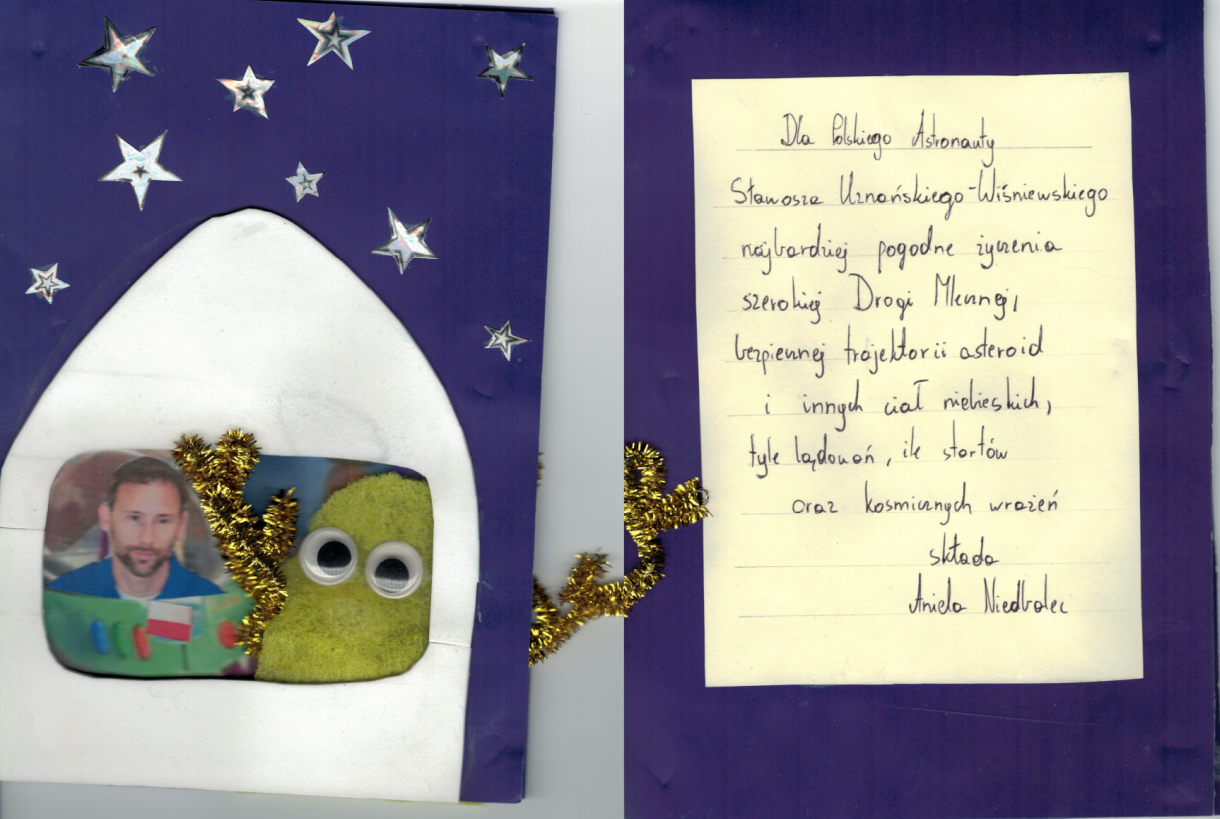 Dla Polskiego Astronauty
Sławosza Uznańskiego-Wiśniewskiego
najbardziej pogodne życzenia
szerokiej Drogi Mlecznej,
bezpiecznej trajektorii asteroid
i innych ciał niebieskich,
tyle lądowań, ile startów
oraz kosmicznych wrażeń
składa
Aniela Niedbalec